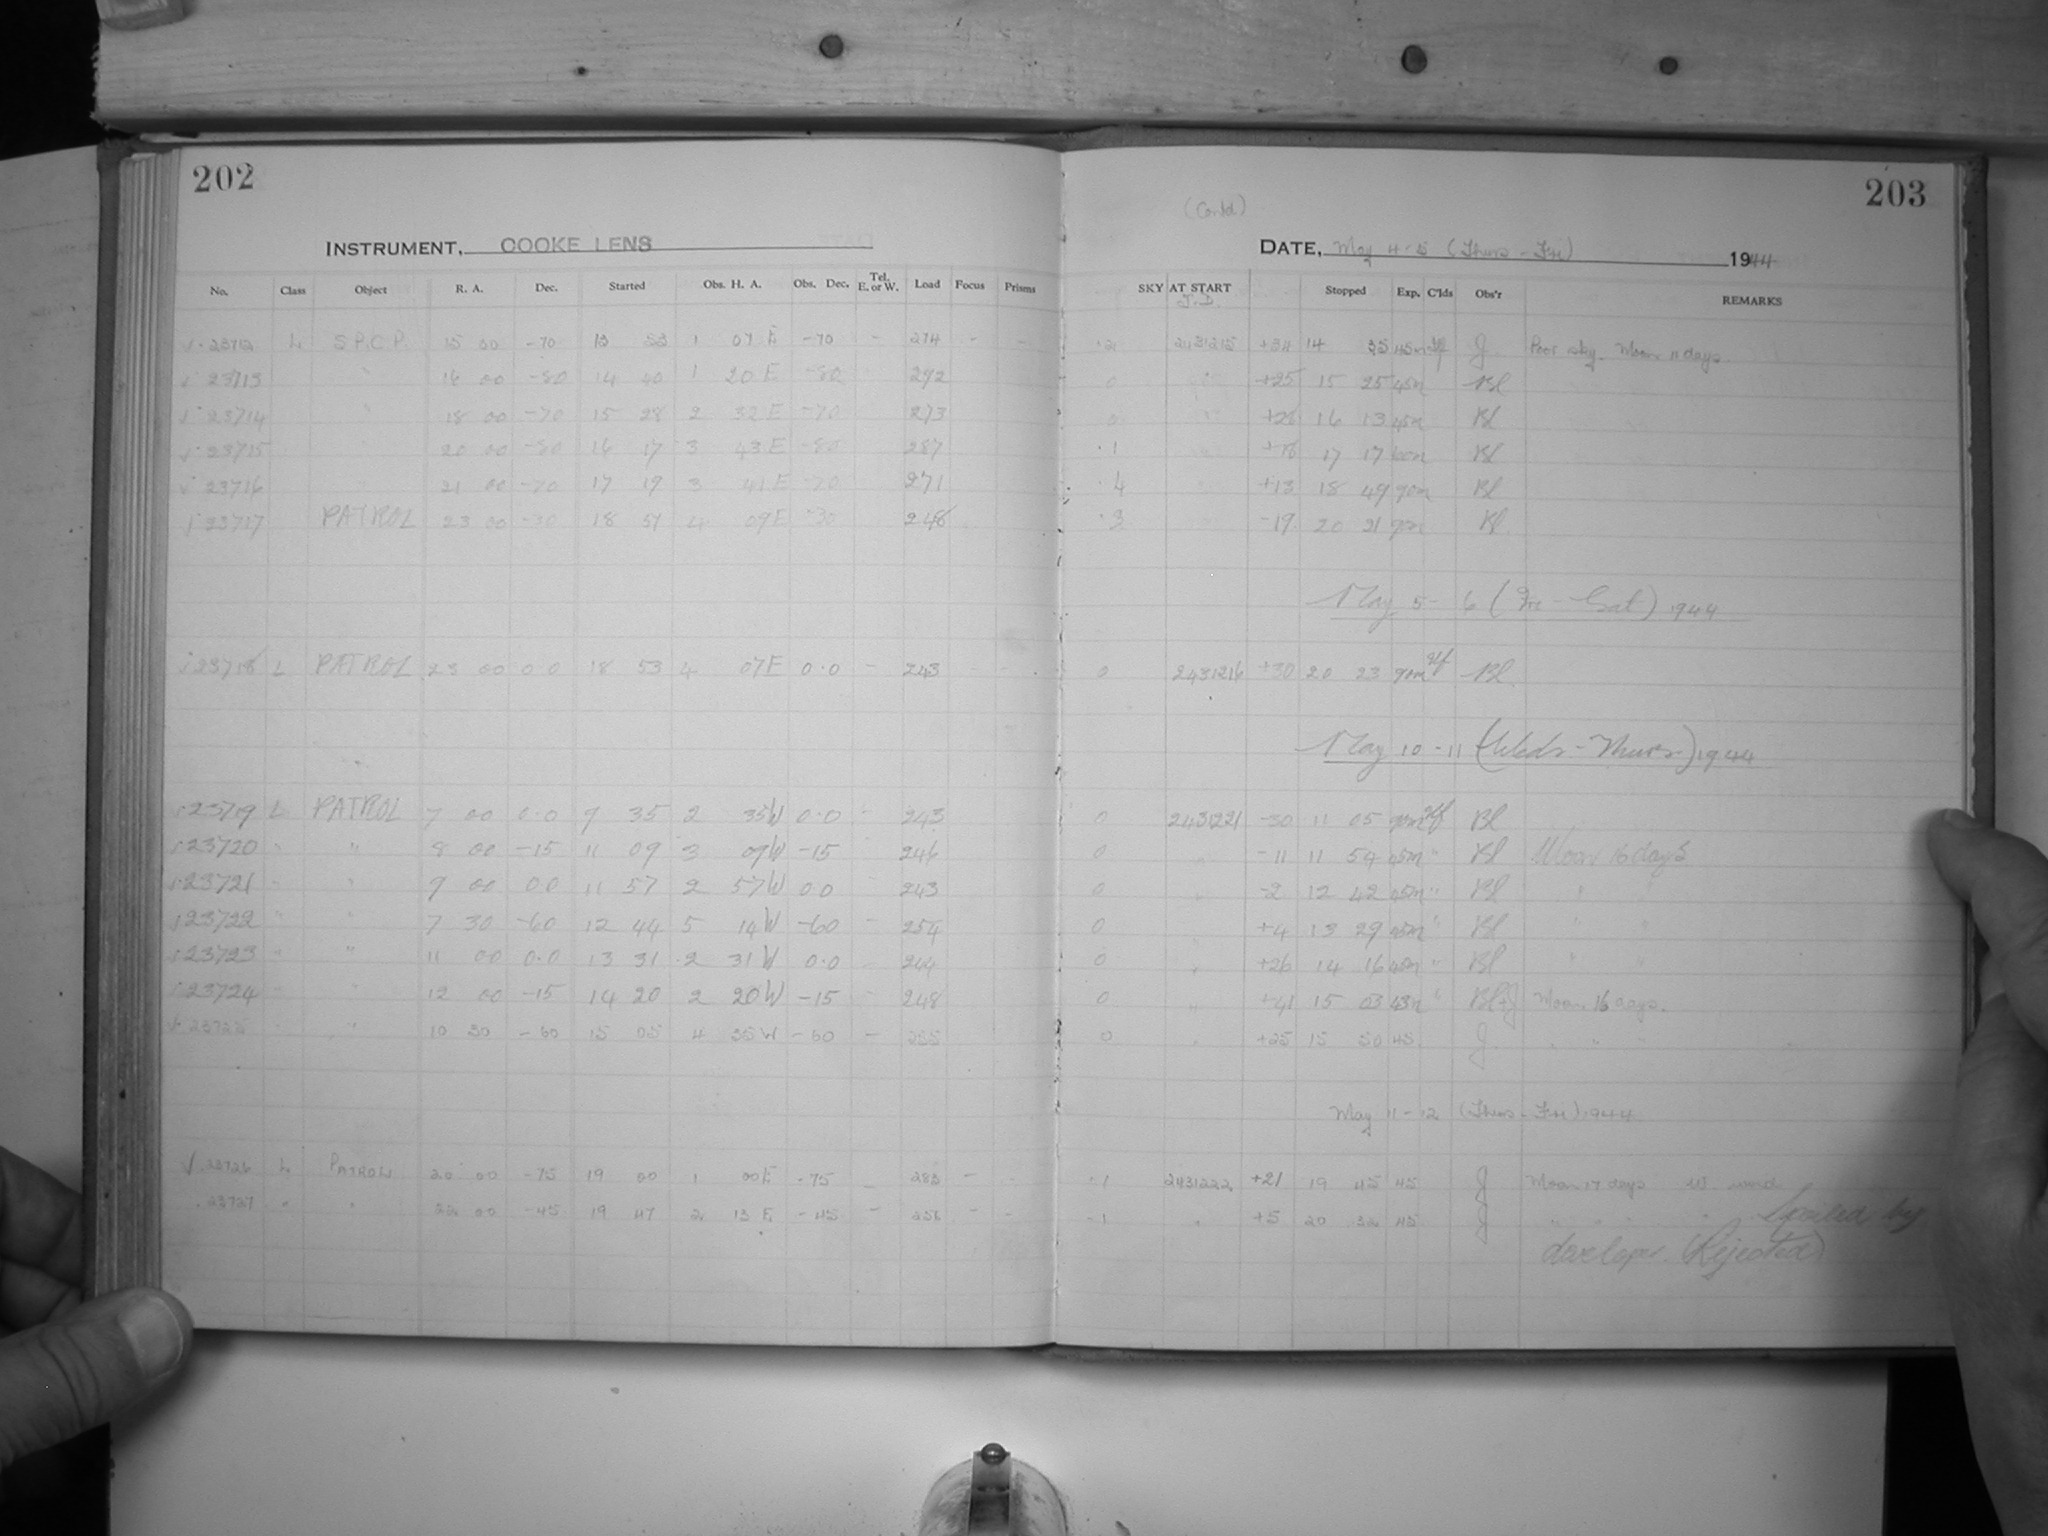 202
203
(Contd)
INSTRUMENT, COOKE LENS
DATE, May 4-5 (Thurs - Fri) 1944
No. Class Object R. A. Dec. Started Obs. H. A. Obs. Dec. Tel. E. or W. Load Focus Prisms SKY AT START J.D. Stopped Exp. C'lds Obs'r REMARKS
23712 L S.P.C.P. 15 00 -70 13 1 07 E -70 - 274 - - 2431215 +34 14 35 45m J Poor sky. Moon 11 days
23713 " 16 00 -80 14 40 1 20 E -80 292 0 " +25 15 25 45m Bl
23714 " 18 00 -70 15 28 2 32 E -70 273 0 " 16 13 45m Bl
23715 " 20 00 -80 16 17 3 43 E -80 287 .1 " 17 17 60m Bl
23716 " 21 00 -70 17 19 3 41 E -70 271 .4 " +13 18 49 90m Bl
23717 PATROL 23 00 -30 18 51 4 09 E -30 246 -19 20 21 90m Bl
May 5-6 (Fri - Sat) 1944
23718 L PATROL 23 00 0.0 18 53 4 07 E 0.0 - 243 - 0 2431216 +30 20 23 90m Bl
May 10-11 (Weds - Thurs) 1944
23719 L PATROL 7 00 0.0 9 35 2 35 W 0.0 - 243 0 2431221 -30 11 05 90m Bl
23720 " " 8 00 -15 11 09 3 09 W -15 246 0 " -11 11 54 45m " Bl Moon 16 days
23721 " " 9 00 0.0 11 57 2 57 W 0.0 243 0 " -2 12 42 45m " Bl " "
23722 " " 7 30 -60 12 44 5 14 W -60 - 254 0 " +4 13 29 45m " Bl " "
23723 " " 11 00 0.0 13 31 2 31 W 0.0 244 0 " +26 14 16 45m " Bl " "
23724 " " 12 00 -15 14 20 2 20 W -15 - 248 0 " +41 15 03 43m " Bl+J Moon 16 days.
23725 " " 10 30 -60 15 05 4 35 W -60 - 255 0 " +25 15 50 45 J " " "
May 11-12 (Thurs - Fri) 1944
23726 L PATROL 20 00 -75 19 00 1 00 E -75 - 283 - - .1 2431222 +21 19 45 45 J Moon 17 days W. wind
23727 " " 22 00 -45 19 47 2 13 E -45 - 256 - - .1 " +5 20 32 45 J " " " " Spoiled by
developer. (Rejected)